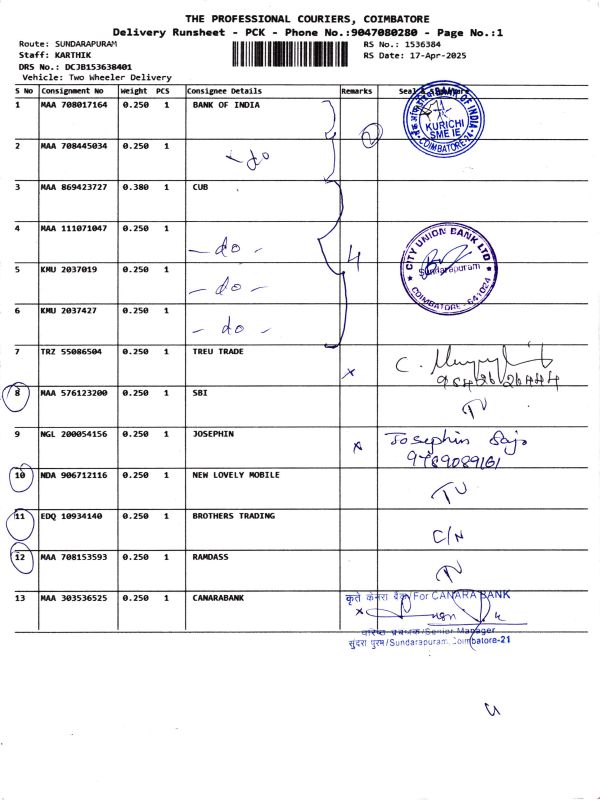 THE PROFESSIONAL COURIERS, COIMBATORE
Delivery Runsheet - PCK - Phone No.:9047080280 - Page No.:1
Route: SUNDARAPURAM
RS No.: 1536384
Staff: KARTHIK
RS Date: 17-Apr-2025
DRS No.: DCJB153638401
Vehicle: Two Wheeler Delivery
S No Consignment No Weight PCS Consignee Details Remarks
1 MAA 708017164 0.250 1 BANK OF INDIA
BANK OF INDIA
KURICHI
SME IE
COIMBATORE-24
2
2 MAA 708445034 0.250 1
do
3 MAA 869423727 0.380 1 CUB
4 MAA 111071047 0.250 1
- do -
4
CITY UNION BANK LTD
Sundarapuram
COIMBATORE - 641024
5 KMU 2037019 0.250 1
- do -
6 KMU 2037427 0.250 1
- do -
7 TRZ 55086504 0.250 1 TREU TRADE
x C.
8 MAA 576123200 0.250 1 SBI
9 NGL 200054156 0.250 1 JOSEPHIN
x Josephin
9789089161
10 NDA 906712116 0.250 1 NEW LOVELY MOBILE
11 EDQ 10934140 0.250 1 BROTHERS TRADING
C/N
12 MAA 708153593 0.250 1 RAMDASS
13 MAA 303536525 0.250 1 CANARABANK
कृते केनरा बैंक/For CANARA BANK
x
वरिष्ठ प्रबन्धक/Senior Manager
सुंदरा पुरम/Sundarapuram, Coimbatore-21